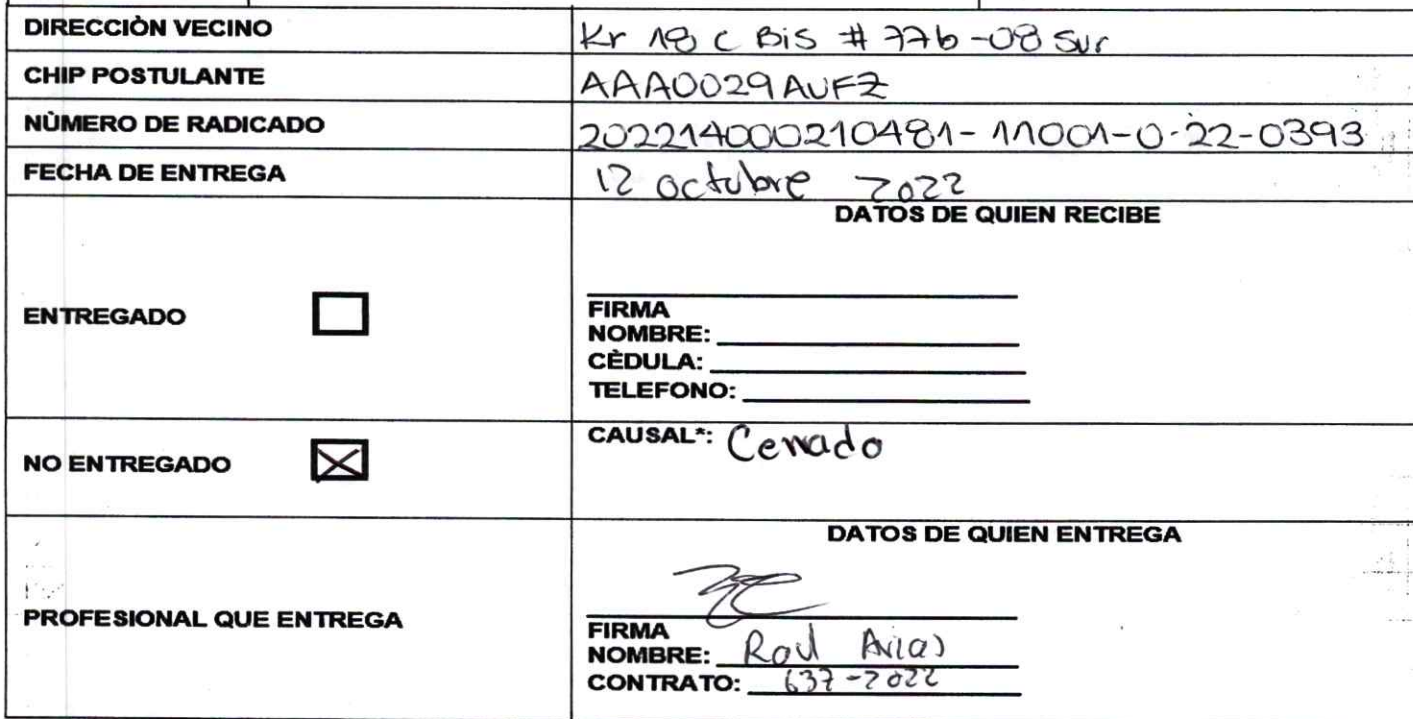 DIRECCIÒN VECINO Kr 18 C Bis # 77b-08 Sur
CHIP POSTULANTE AAA0029AUFZ
NÙMERO DE RADICADO 202214000210481-11001-0-22-0393
FECHA DE ENTREGA 12 octubre 2022
DATOS DE QUIEN RECIBE
ENTREGADO
FIRMA
NOMBRE:
CÈDULA:
TELEFONO:
NO ENTREGADO
CAUSAL*: Cerrado
DATOS DE QUIEN ENTREGA
PROFESIONAL QUE ENTREGA
FIRMA
NOMBRE: Raul Arias
CONTRATO: 637-2022